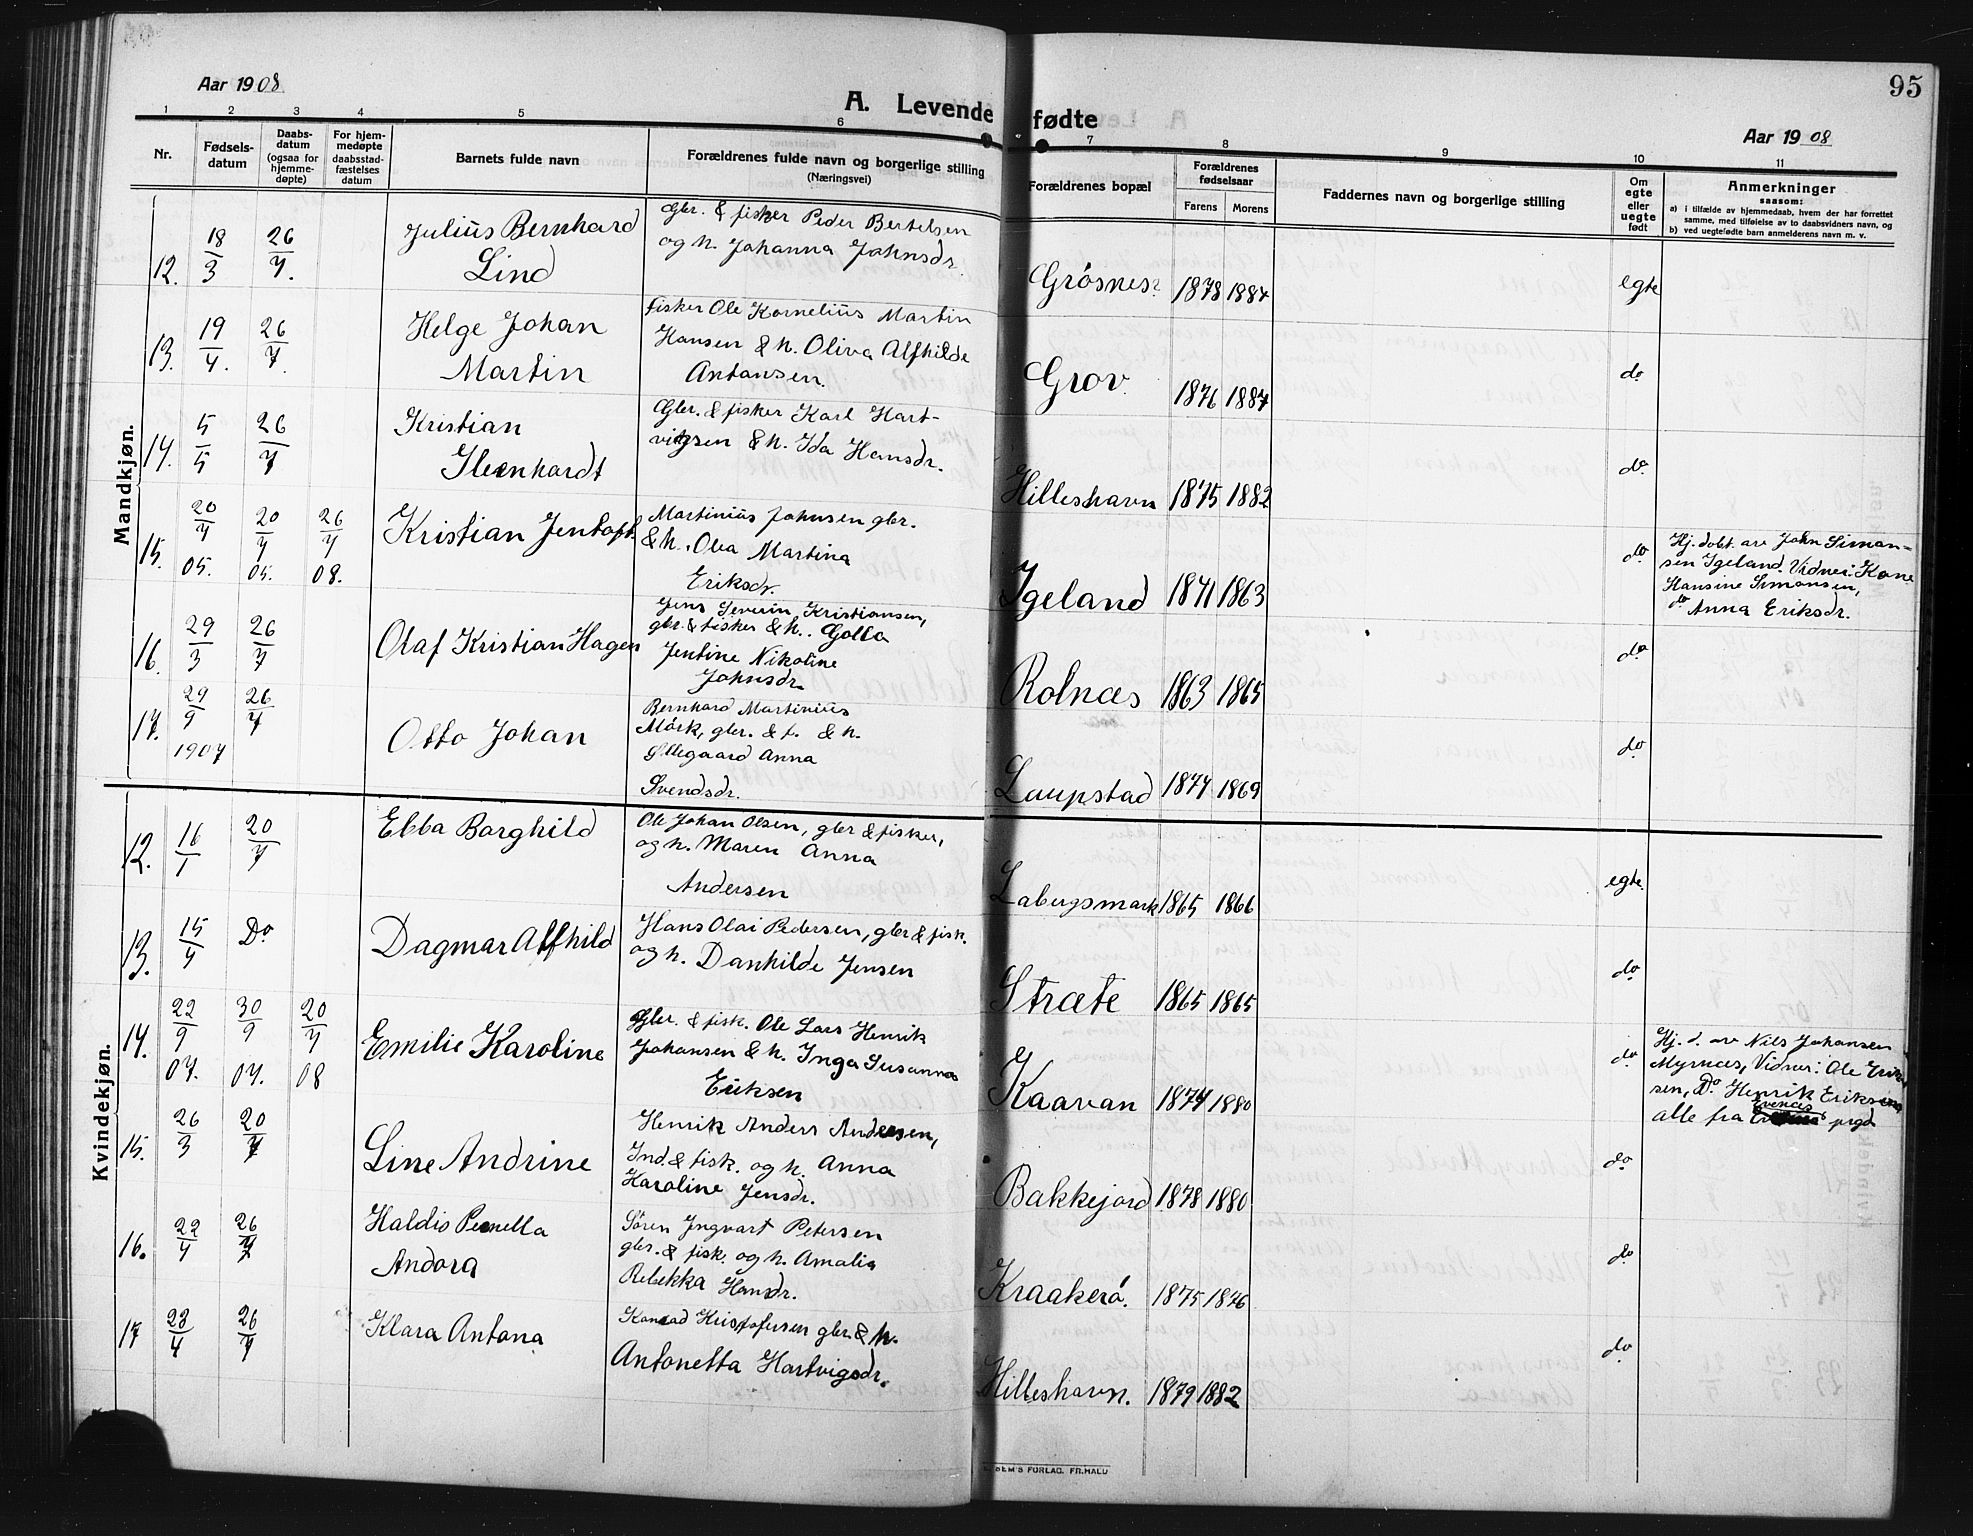 95
Aar 1908
A. Levende fødte
Aar 1908
1 2 3 4 5 6 7 8 9 10 11
Nr.
Fødsels-
datum
Daabs-
datum
(ogsaa for
hjemme-
døpte)
For hjem-
medøpte
daabsstad-
fæstelses
datum
Barnets fulde navn
Forældrenes fulde navn og borgerlige stilling
(Næringsvei)
Forældrenes bopæl
Forældrenes
fødselsaar
Farens Morens
Faddernes navn og borgerlige stilling
Om
egte
eller
uegte
født
Anmerkninger
saasom:
a) i tilfælde av hjemmedaab, hvem der har forrettet
samme, med tilføielse av to daabsvidners navn, og
b) ved uegtefødte barn anmelderens navn m. v.
Mandkjøn.
12. 18/3 26/7. Julius Bernhard
Lind
Gbr. & fisker Peder Bertelsen
og h. Johanna Johnsdr.
Grøsnes 1878 1887 egte
13. 19/4. 26/7. Helge Johan
Martin
Fisker Ole Kornelius Martin
Hansen & h. Oliva Alfhilde
Antonsen.
Grov 1876 1887 do
14. 5/5 26/7 Kristian
Gbr. & fisker Karl Hart-
vigsen & h. Ida Hansdr.
Hilleshavn 1875 1882 do
15. 20/7 05. 20/7 05. 26/7 08. Kristian Jentoft
Martinius Johnsen gbr.
& h. Olea Martina
Eriksdr.
Igeland 1871 1863 do
Hj. døbt av John Siman-
sen Igeland. Vidner: Kone
Hansine Simonsen,
do Anna Eriksdr.
16. 29/3 26/7 Olaf Kristian Hagen
Jens Severin Kristiansen,
gbr. & fisker & h. Golla
Jentine Nikoline
Johnsdr.
Rolnæs 1863 1865 do
17. 29/9 1907 26/7 Otto Johan
Bernhard Martinius
Mörk, gbr. & f. & h.
Ellegaard Anna
Svendsdr.
Laupstad 1874 1869 do
Kvindekjøn.
12. 16/1 20/7 Ebba Borghild
Ole Johan Olsen, gbr & fisker,
og h. Maren Anna
Andersen
Labergsmark 1865 1866 egte
13. 15/4 Do Dagmar Alfhild
Hans Olai Pedersen, gbr & fisk.
og h. Danhilde Jensen
Stræte 1865 1865 do
14. 22/9 07. 30/9 07. 20/7 08 Emilie Karoline
Gbr. & fisk. Ole Lars Henrik
Johansen & h. Inga Susanna
Eriksen
Kaavan 1874 1880 do
Hj. d. av Nils Johansen
Myrnæs, Vidner: Ole Erik-
sen, Do Henrik Eriksen
Evenes
alle fra prgd
15. 26/3 20/7 Line Andrine
Henrik Anders Andersen,
Ind. & fisk. og h. Anna
Karoline Jensdr.
Bakkejord 1878 1880 do
16. 22/4 26/7 Haldis Pernella
Andora
Sören Ingvart Petersen
gbr. & fisk. og h. Amalia
Rebekka Hansdr.
Kraakerø. 1875 1876 do
17 23/4 26/7 Klara Antona
Konrad Kristofersen gbr. & h.
Antonetta Hartvigsdr.
Hilleshavn. 1879 1882 do
SEM'S FORLAG. FR.HALD